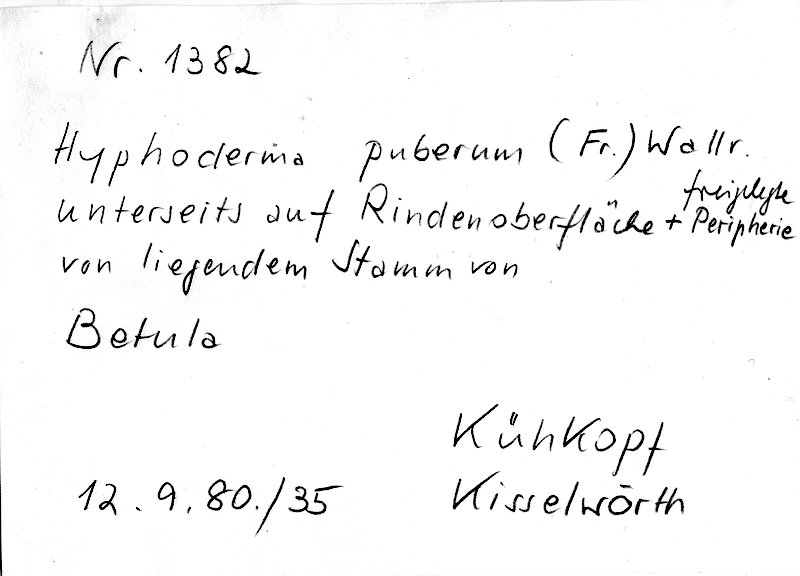 Nr. 1382
Hyphoderma puberum (Fr.) Wallr.
unterseits auf Rindenoberfläche + freigelegte Peripherie
von liegendem Stamm von
Betula
Kühkopf
12.9.80./35 Kisselwörth